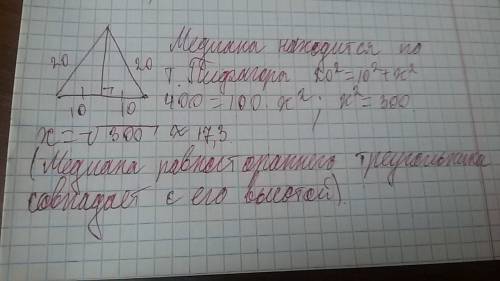 20 20
10 10
Медиана находится по
т. Пифагора 20²=10²+x²
400=100·x²; x²=300
x=√300 ≈ 17,3.
(Медиана равностороннего треугольника
совпадает с его высотой).